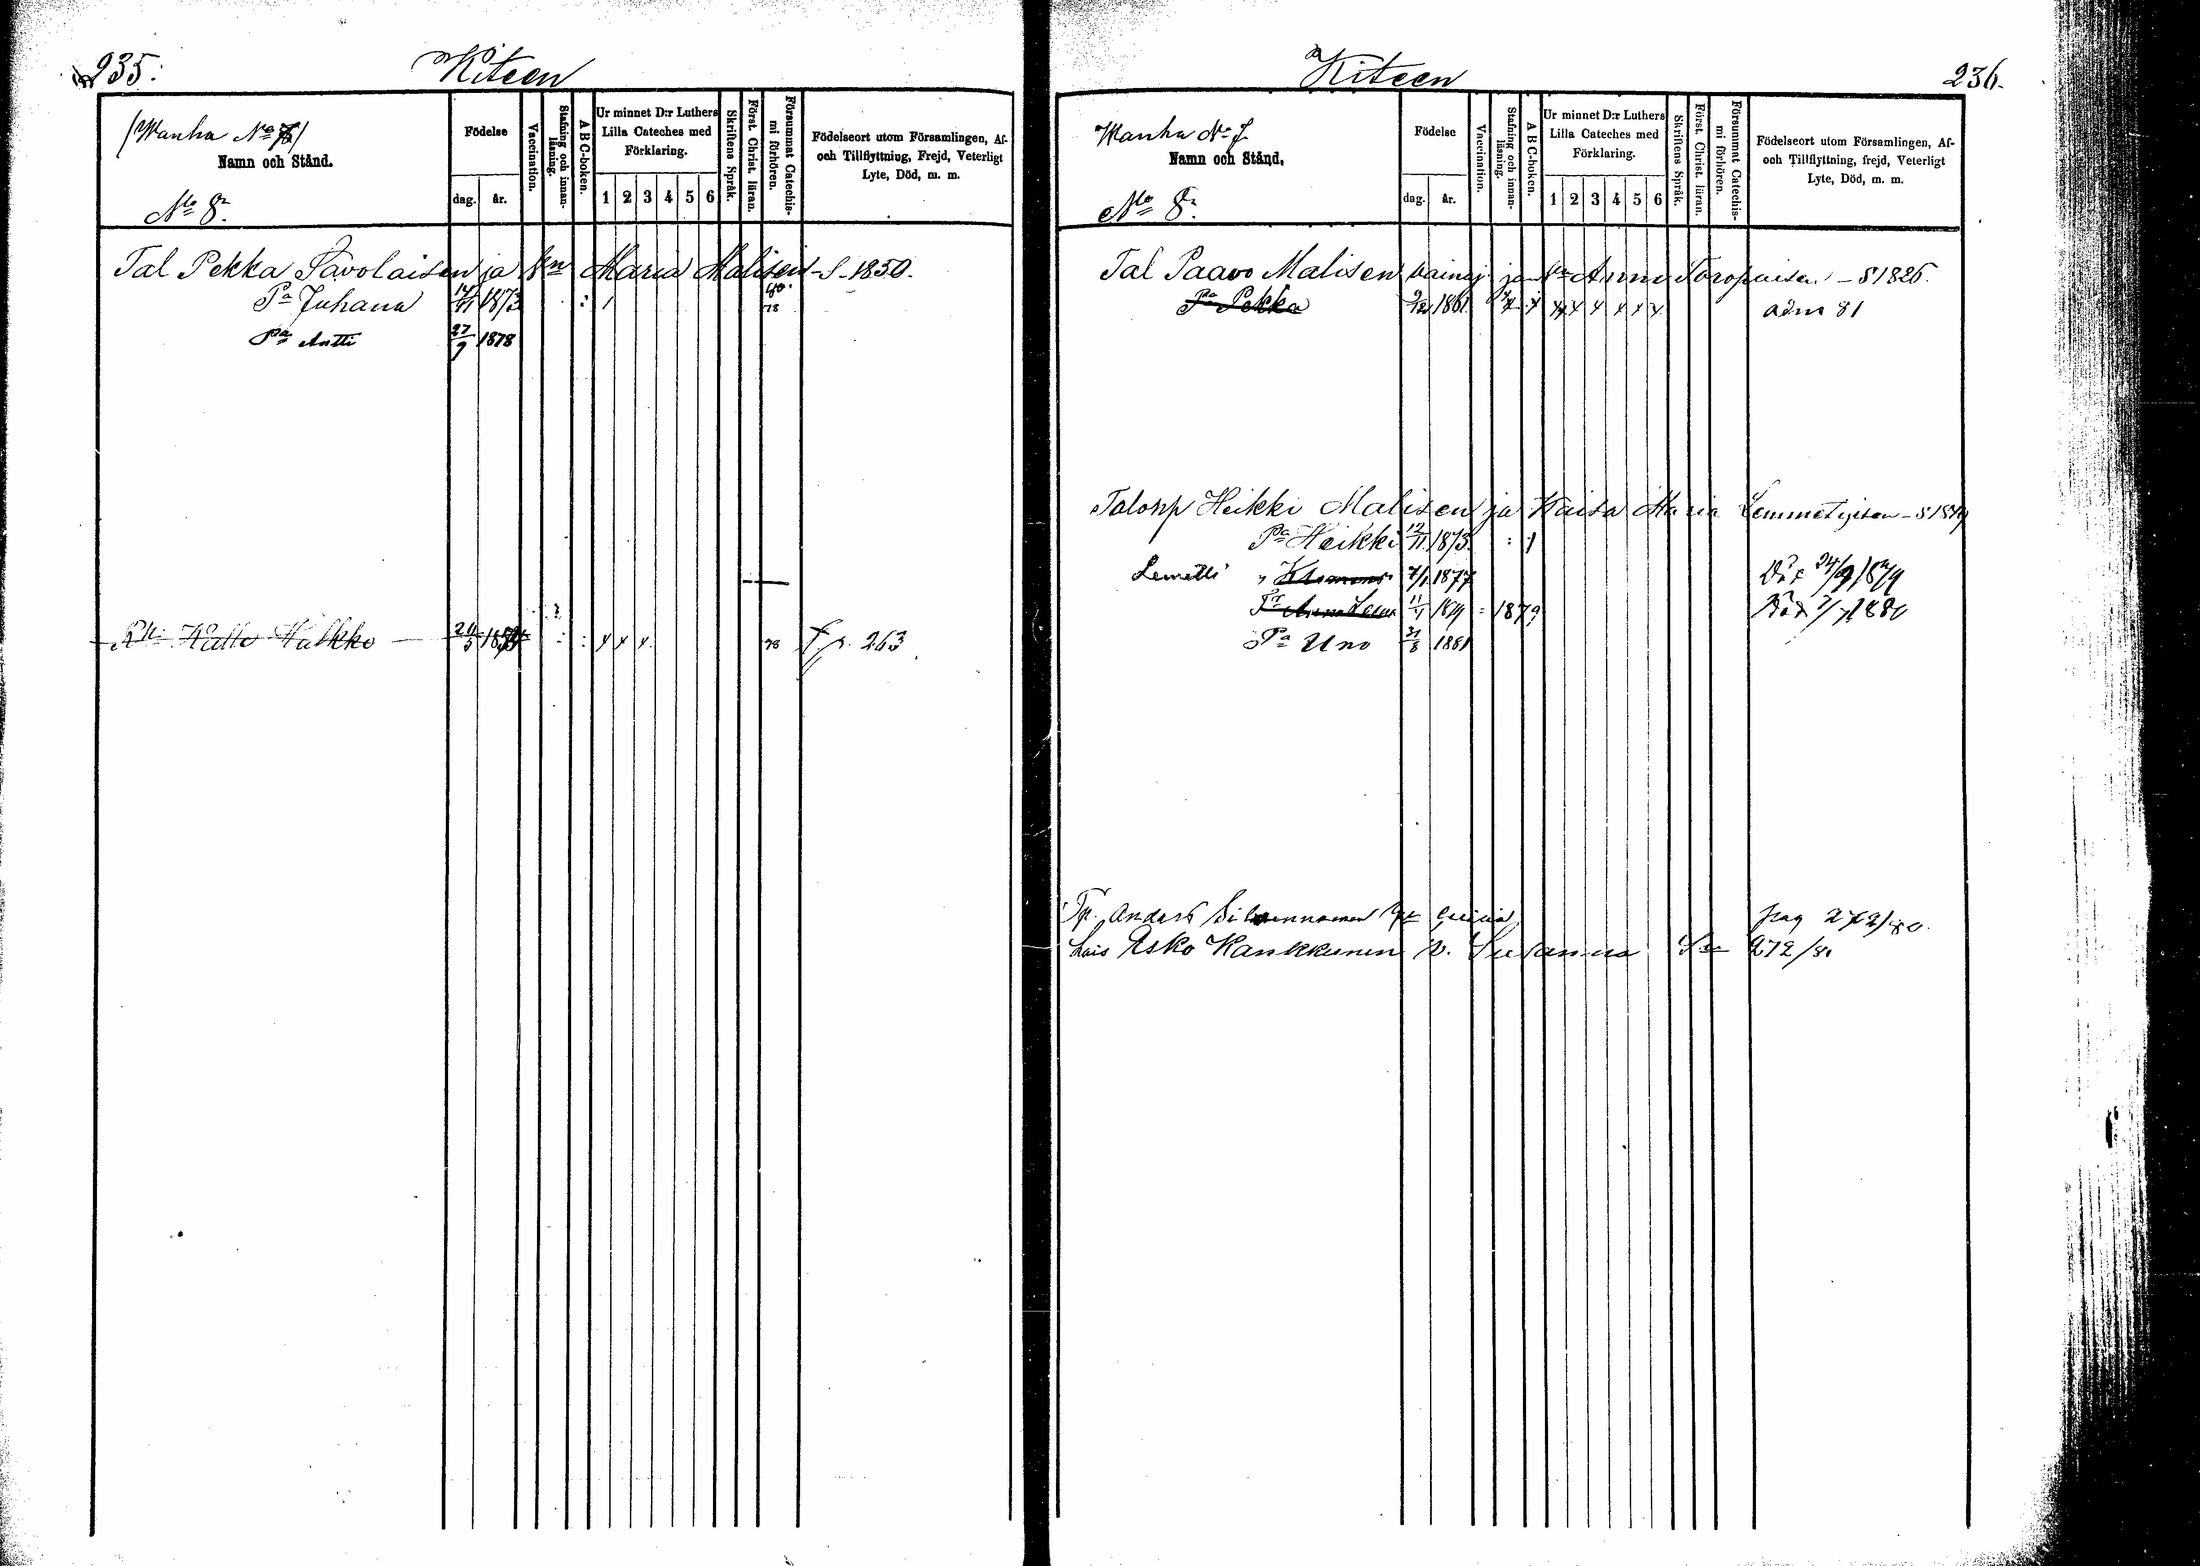 235.
Kiteen
(Wanha No 7)
Namn och Stånd.
No 8.
Födelse
dag.
år.
Vaccination.
Stafning och innanläsning.
A B C-boken.
Ur minnet D:r Luthers Lilla Cateches med Förklaring.
1 2 3 4 5 6
Skriftens Språk.
Först. Christ. läran.
Försummat Catechismi förhören.
Födelseort utom Församlingen, Af- och Tillflyttning, Frejd, Veterligt Lyte, Död, m. m.
Tal Pekka Savolaisen ja Vn Maria Malisen - S. 1850.
Pa Juhana 14/11 1873 : 1 80. 78
Pa Antti 27/9 1878
Kalle Hulkko : : x x x 78 f p. 263
Kiteen
236.
Wanha No 7
Namn och Stånd.
No 8.
Födelse
dag.
år.
Vaccination.
Stafning och innanläsning.
A B C-boken.
Ur minnet D:r Luthers Lilla Cateches med Förklaring.
1 2 3 4 5 6
Skriftens Språk.
Först. Christ. läran.
Försummat Catechismi förhören.
Födelseort utom Församlingen, Af- och Tillflyttning, frejd, Veterligt Lyte, Död, m. m.
Tal Paavo Malisen ja Vn Anni Toropaisen - S 1826.
Pa Pekka 9/12 1861 x x x x x x x x adm 81
Talonp Heikki Malisen ja Kaisa Maria Lemmetyisen - S
Pa Heikki 12/11 1873 : 1
Lemetti " Klemens 7/1 1877 Död 24/9 1879
Tr Anna Leena 11/1 1879 = 1879 Död 1880
Pa Uno 31/8 1881
Tp. Anders pag 272/80.
Lois Esko Kankkunen Susanna 272/80